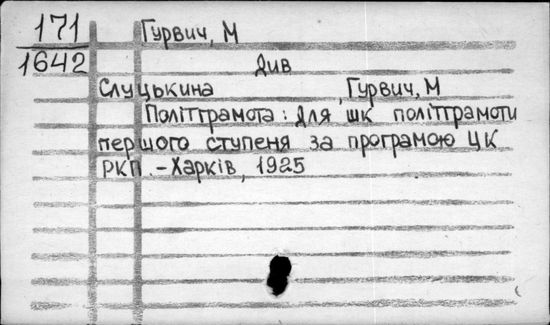 171
1642
Гурвич, М
Див
Слуцькина , Гурвич, М
Політграмота: для шк політграмоти
першого ступеня за програмою ЦК
РКП. - Харків, 1925